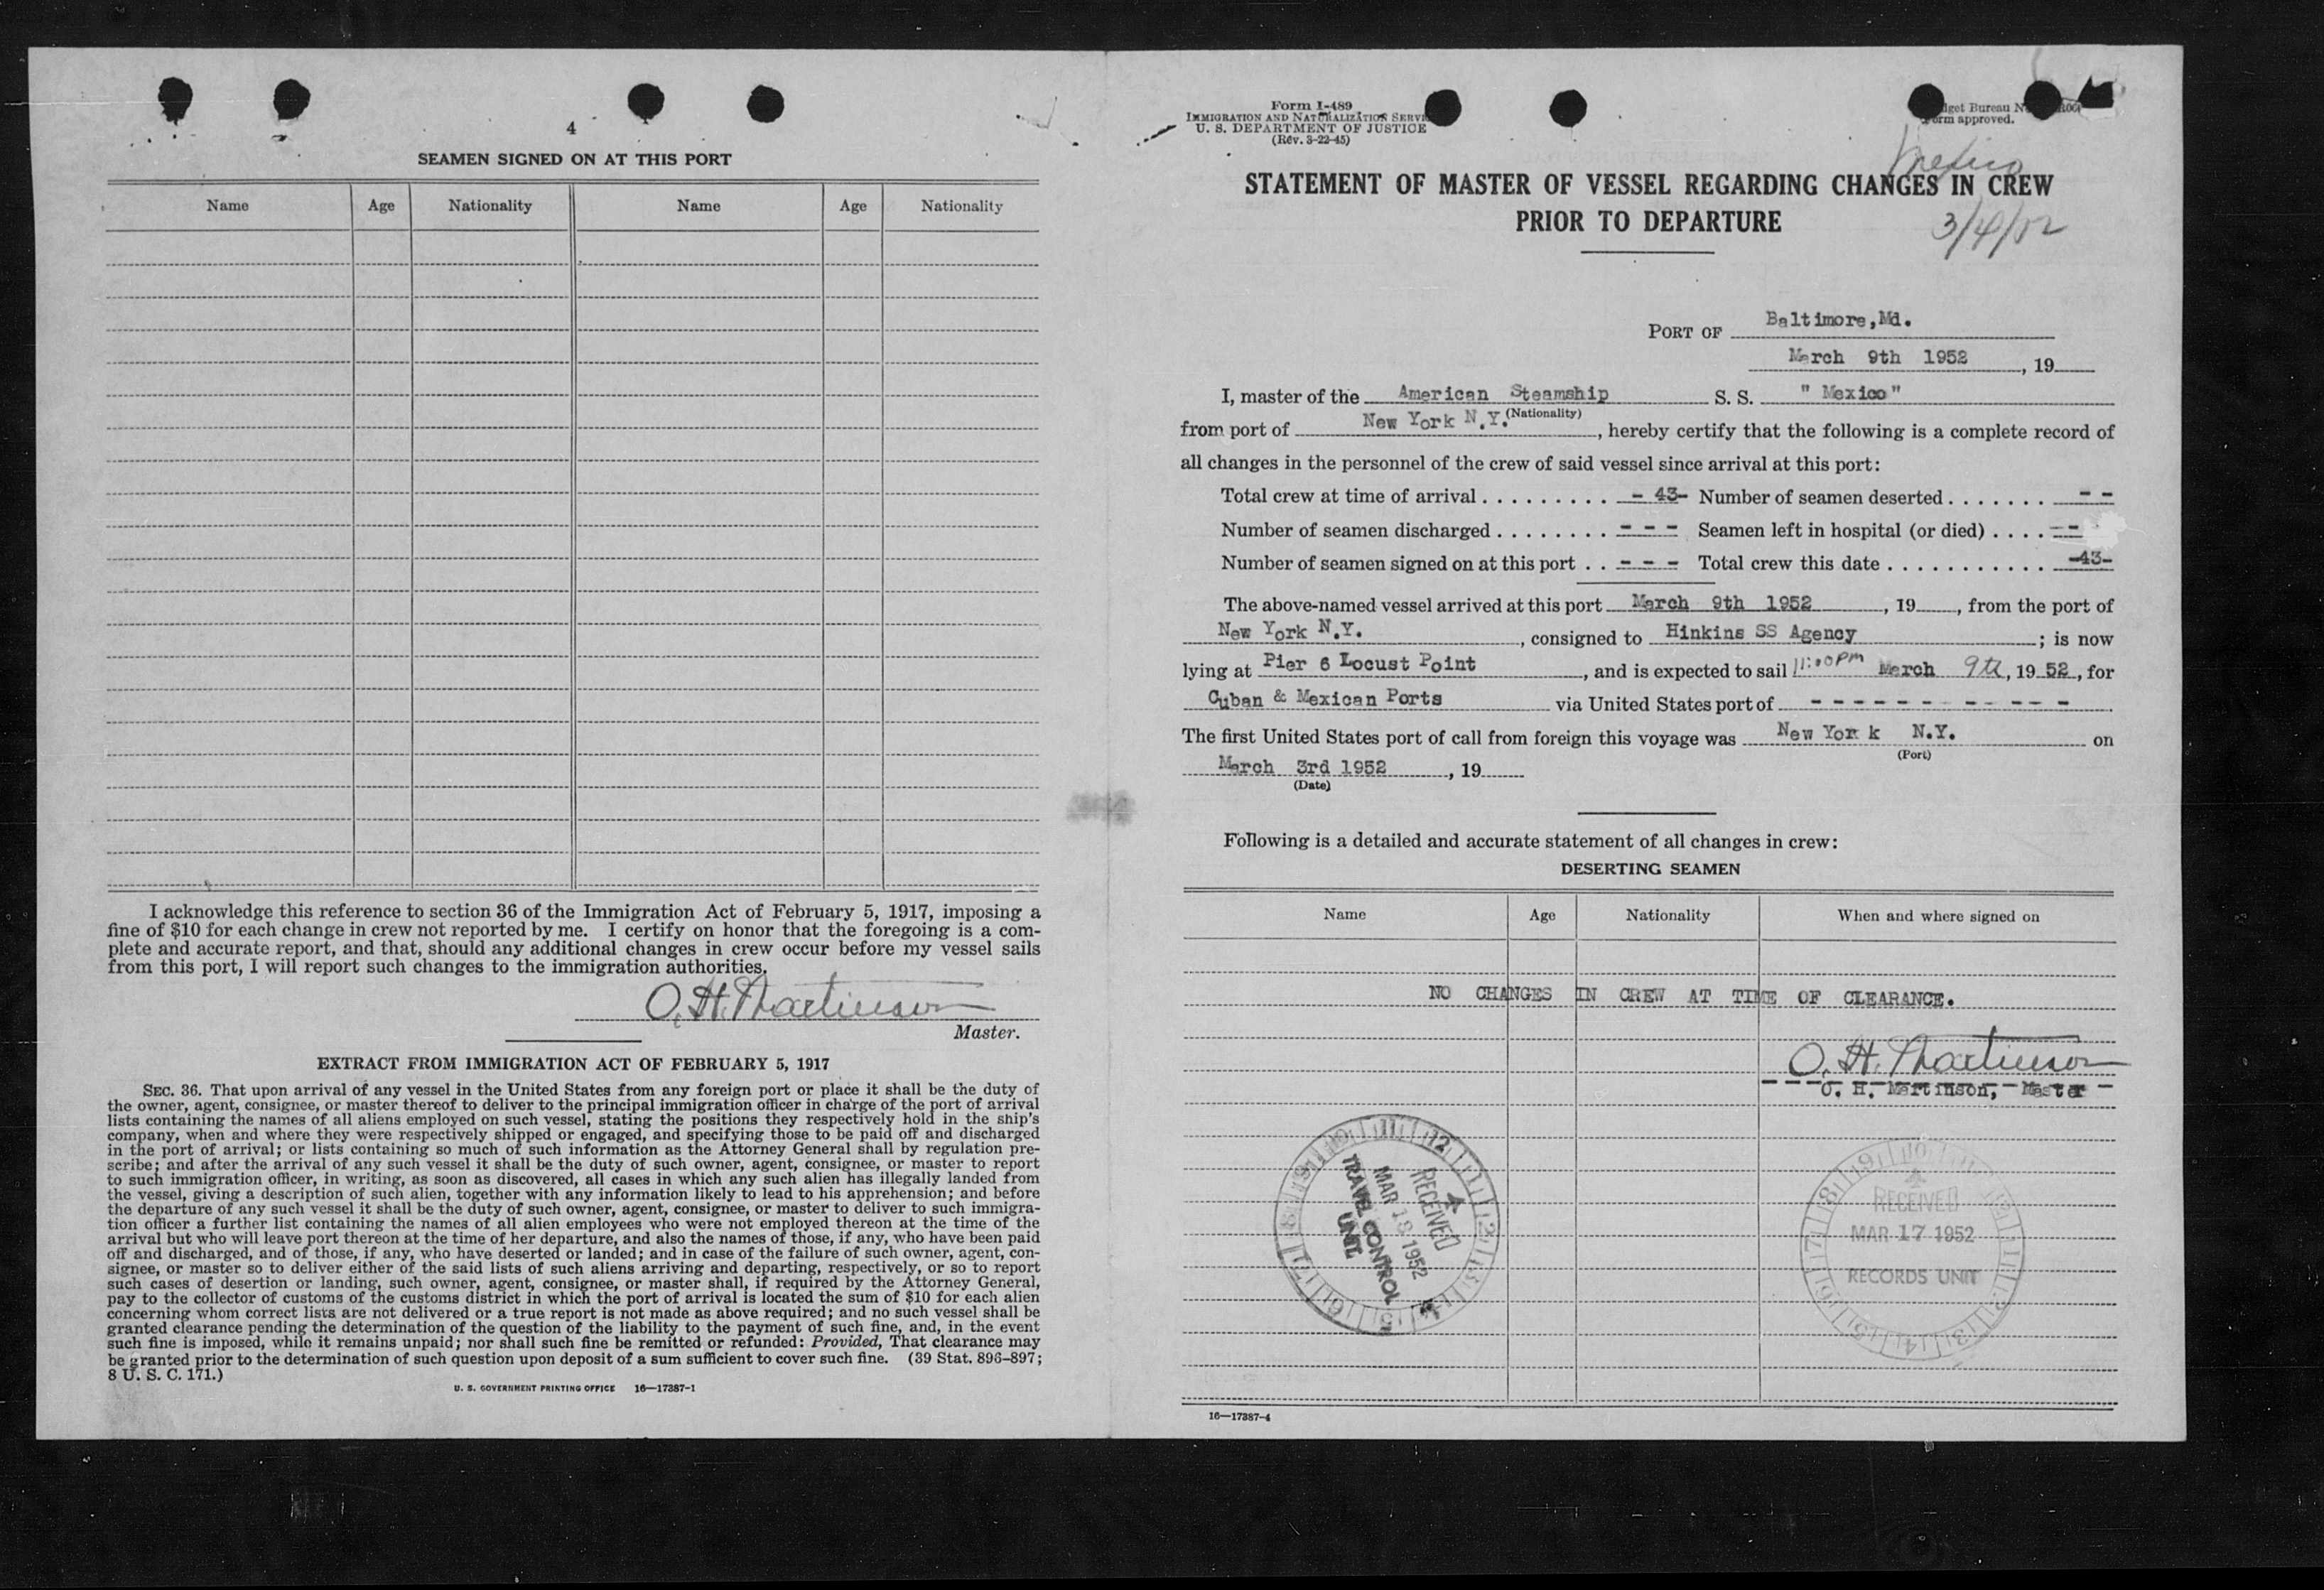 4
SEAMEN SIGNED ON AT THIS PORT
Name Age Nationality Name Age Nationality
I acknowledge this reference to section 36 of the Immigration Act of February 5, 1917, imposing a
fine of $10 for each change in crew not reported by me. I certify on honor that the foregoing is a com-
plete and accurate report, and that, should any additional changes in crew occur before my vessel sails
from this port, I will report such changes to the immigration authorities.
O. H. Martinson
Master.
EXTRACT FROM IMMIGRATION ACT OF FEBRUARY 5, 1917
SEC. 36. That upon arrival of any vessel in the United States from any foreign port or place it shall be the duty of
the owner, agent, consignee, or master thereof to deliver to the principal immigration officer in charge of the port of arrival
lists containing the names of all aliens employed on such vessel, stating the positions they respectively hold in the ship's
company, when and where they were respectively shipped or engaged, and specifying those to be paid off and discharged
in the port of arrival; or lists containing so much of such information as the Attorney General shall by regulation pre-
scribe; and after the arrival of any such vessel it shall be the duty of such owner, agent, consignee, or master to report
to such immigration officer, in writing, as soon as discovered, all cases in which any such alien has illegally landed from
the vessel, giving a description of such alien, together with any information likely to lead to his apprehension; and before
the departure of any such vessel it shall be the duty of such owner, agent, consignee, or master to deliver to such immigra-
tion officer a further list containing the names of all alien employees who were not employed thereon at the time of the
arrival but who will leave port thereon at the time of her departure, and also the names of those, if any, who have been paid
off and discharged, and of those, if any, who have deserted or landed; and in case of the failure of such owner, agent, con-
signee, or master so to deliver either of the said lists of such aliens arriving and departing, respectively, or so to report
such cases of desertion or landing, such owner, agent, consignee, or master shall, if required by the Attorney General,
pay to the collector of customs of the customs district in which the port of arrival is located the sum of $10 for each alien
concerning whom correct lists are not delivered or a true report is not made as above required; and no such vessel shall be
granted clearance pending the determination of the question of the liability to the payment of such fine, and, in the event
such fine is imposed, while it remains unpaid; nor shall such fine be remitted or refunded: Provided, That clearance may
be granted prior to the determination of such question upon deposit of a sum sufficient to cover such fine. (39 Stat. 896-897;
8 U. S. C. 171.)
U. S. GOVERNMENT PRINTING OFFICE 16—17387-1
Form I-489
IMMIGRATION AND NATURALIZATION SERV
U. S. DEPARTMENT OF JUSTICE
(Rev. 3-22-45)
get Bureau
orm approved.
Mexico
STATEMENT OF MASTER OF VESSEL REGARDING CHANGES IN CREW
PRIOR TO DEPARTURE
3/4/52
PORT OF Baltimore, Md.
March 9th 1952, 19
I, master of the American Steamship S. S. "Mexico"
(Nationality)
from port of New York N.Y., hereby certify that the following is a complete record of
all changes in the personnel of the crew of said vessel since arrival at this port:
Total crew at time of arrival . . . . . . . . . - 43- Number of seamen deserted . . . . . . . - -
Number of seamen discharged . . . . . . . . - - - Seamen left in hospital (or died) . . . . - -
Number of seamen signed on at this port . . - - - Total crew this date . . . . . . . . . . . . -43-
The above-named vessel arrived at this port March 9th 1952, 19, from the port of
New York N.Y., consigned to Hinkins SS Agency; is now
lying at Pier 6 Locust Point, and is expected to sail 11:00PM March 9th, 19 52, for
Cuban & Mexican Ports via United States port of - - - - - - - - - - - -
The first United States port of call from foreign this voyage was New York N.Y. on
(Port)
March 3rd 1952, 19
(Date)
Following is a detailed and accurate statement of all changes in crew:
DESERTING SEAMEN
Name Age Nationality When and where signed on
NO CHANGES IN CREW AT TIME OF CLEARANCE.
O. H. Martinson
O. H. Martinson, Master
RECEIVED
MAR 18 1952
TRAVEL CONTROL
UNIT
RECEIVED
MAR 17 1952
RECORDS UNIT
16—17387-4